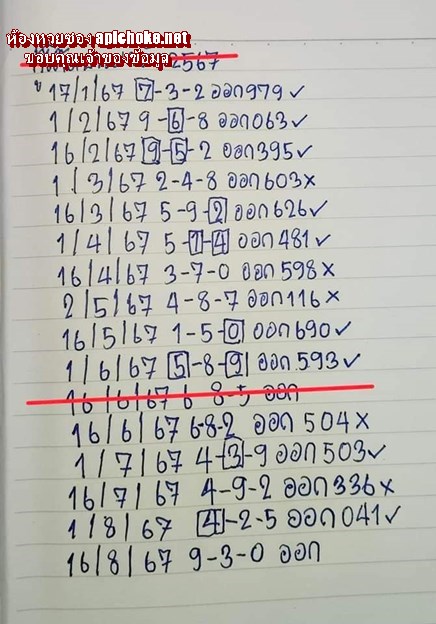 ห้องหวยซอง apichoke.net
ขอบคุณเจ้าของข้อมูล
2567
ช 17/1/67 7-3-2 ออก 979 ✓
1/2/67 9-6-8 ออก 063 ✓
16/2/67 9-5-2 ออก 395 ✓
1/3/67 2-4-8 ออก 603 x
16/3/67 5-9-2 ออก 626 ✓
1/4/67 5-1-4 ออก 481 ✓
16/4/67 3-7-0 ออก 598 x
2/5/67 4-8-7 ออก 116 x
16/5/67 1-5-0 ออก 690 ✓
1/6/67 5-8-9 ออก 593 ✓
16/6/67 6 8-5 ออก
16/6/67 6-8-2 ออก 504 x
1/7/67 4-3-9 ออก 503 ✓
16/7/67 4-9-2 ออก 336 x
1/8/67 4-2-5 ออก 041 ✓
16/8/67 9-3-0 ออก